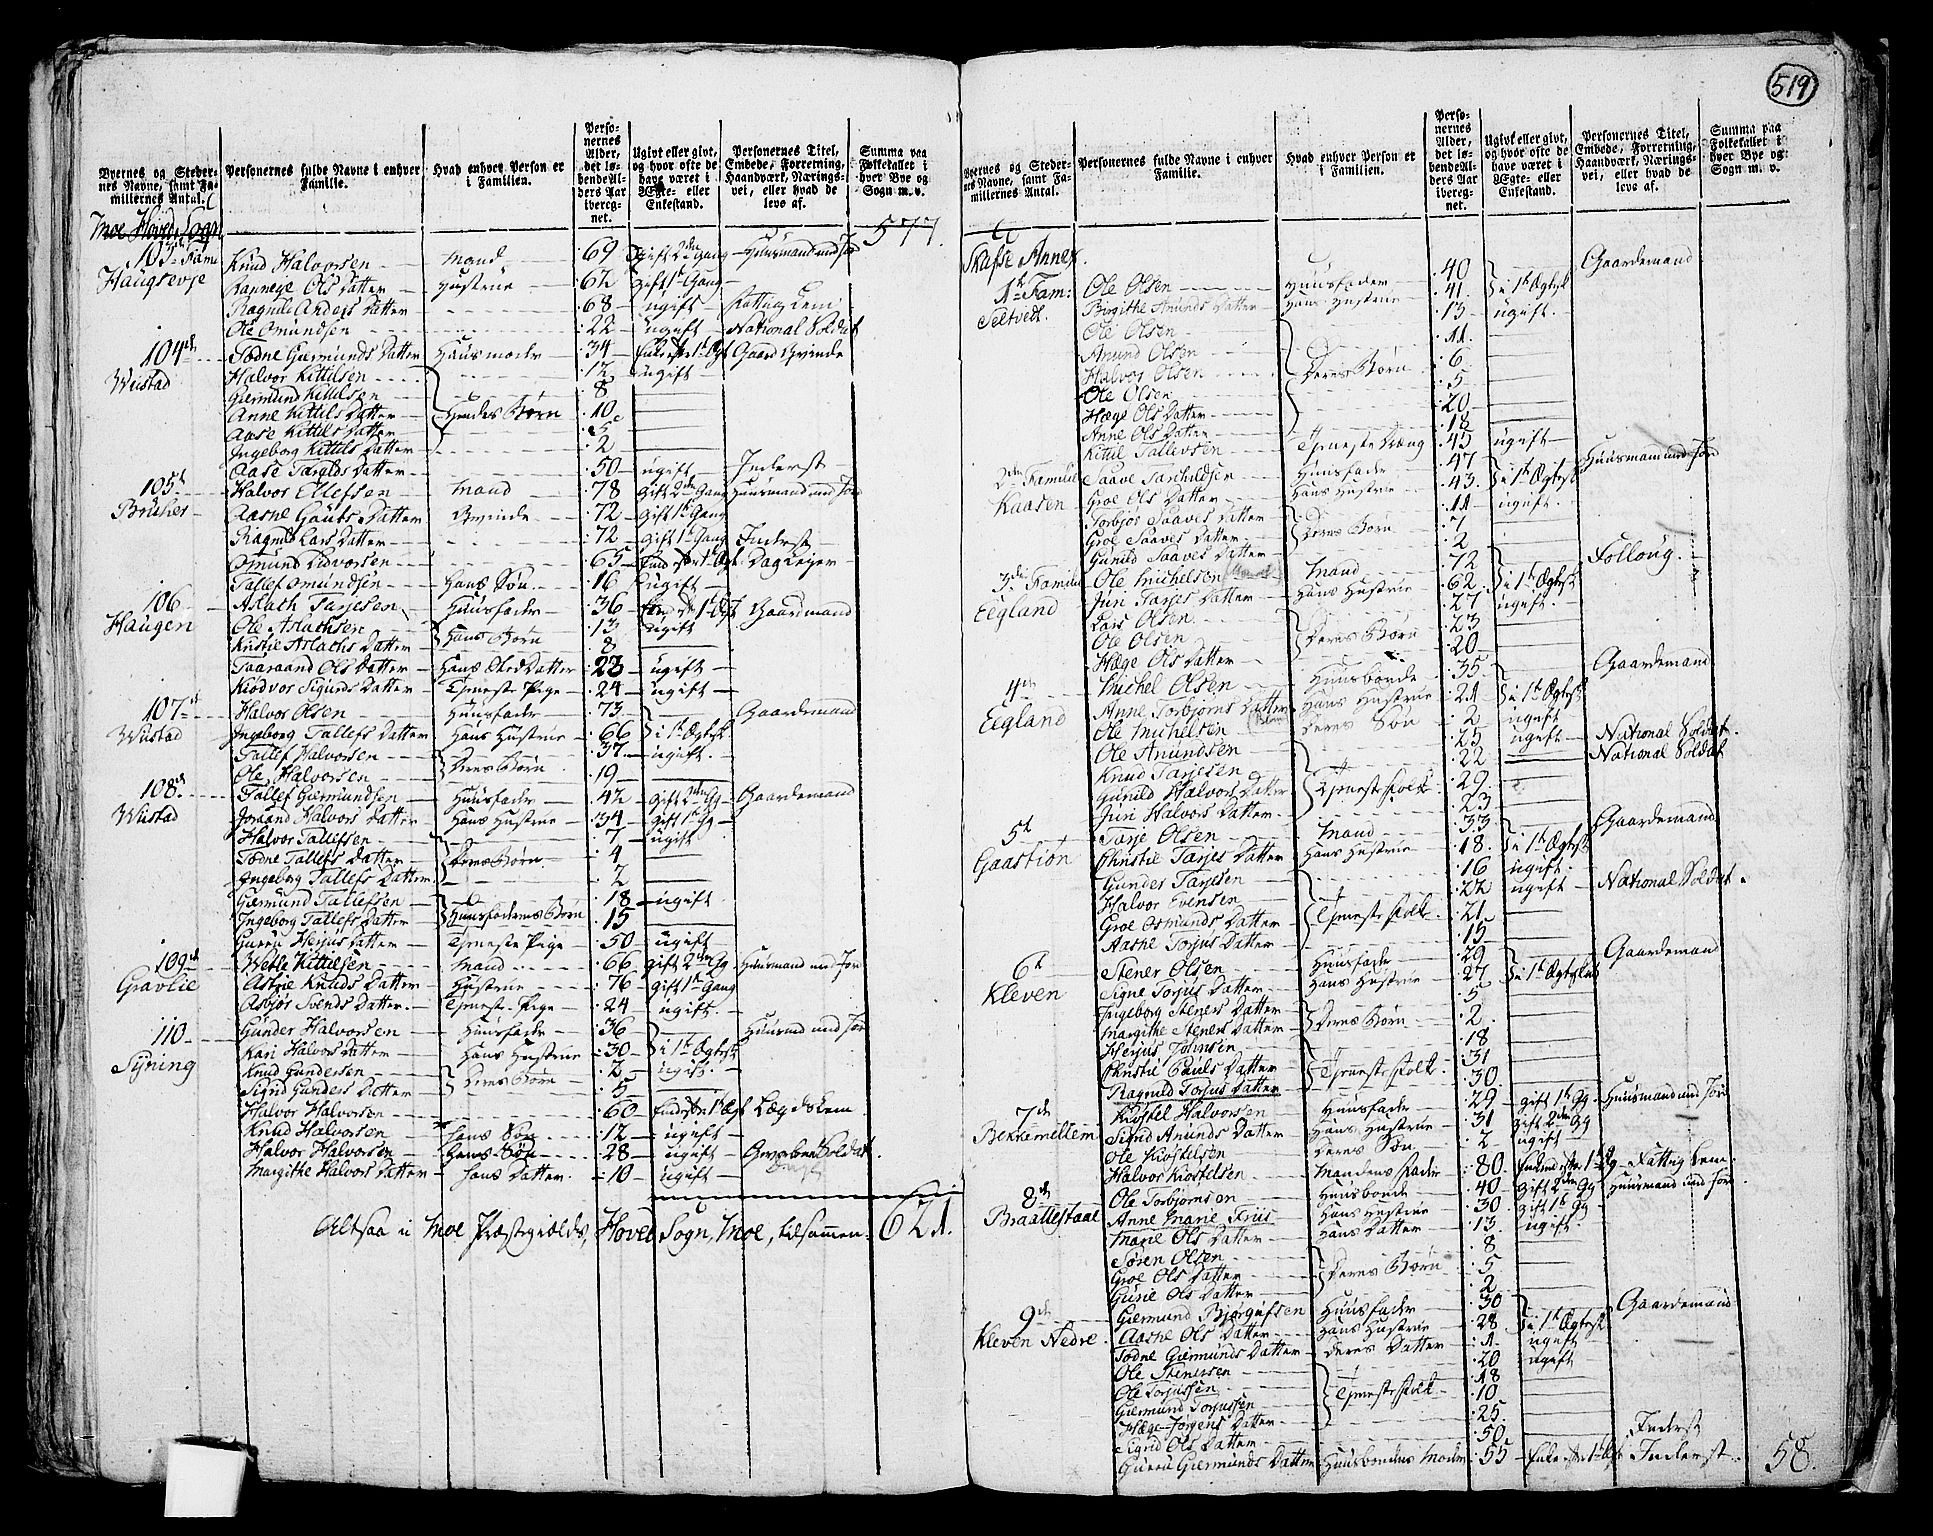 519
Byernes og Steder-
nes Navne, samt Fa-
milliernes Antal.
Personernes fulde Navne i enhver
Familie.
Hvad enhver Person er
i Familien.
Perso-
nernes
Alder,
det lø-
bende Al-
ders Aar
ibereg-
net.
Ugivt eller givt,
og hvor ofte de
have været i
Ægte- eller
Enkestand.
Personernes Titel,
Embede, Forretning,
Haandværk, Nærings-
vei, eller hvad de
leve af.
Summa paa
Folketallet i
hver Bye og
Sogn m. v.
Moe Hoved Sogn 577
103de Fam: Knud Halvorsen Mand 69 Gift 2den Gang Huusmand med Jord
Haugsevje Ols Datter Hustrue 62 Gift 1te Gang
Ragnild Anders Datter 68 ugift Fattig Lem
Ole Omundsen 22 ugift National Soldat
104de Todne Giermunds Datter Huusmoder 34 Enke efter 1te Ægt Gaard Qvinde
Wustad Halvor Kittilsen 12 ugift
Giermund Kittilsen 8
Anne Kittils Datter Hendes Børn 10
Aase Kittils Datter 5
Ingeborg Kittils Datter 2
Aase Taralds Datter 50 ugift Inderst
105te Halvor Ellefsen Mand 78 Gift 2den Gang Huusmand med Jord
Aasne Gauts Datter Qvinde 72 Gift 1te Gang
Ragnild Lars Datter 72 Gift 1te Gang Inderst
Omund Lidvorsen 65 Dag Leyer
Tallef Omundsen Hans Søn 16 ugift
106 Aslach Tarjesen Huusfader 36 Gaardmand
Haugen Ole Aslachsen 13 ugift
Kistie Aslachs Datter Hans Børn 8
Taaraand Ols Datter Hans Sted Datter 23 ugift
Kiodvor Sigurds Datter Tjeneste Pige 24 ugift
107de Halvor Olsen Huusfader 73 Gaardemand
Wustad Ingeborg Tallefs Datter Hans Hustrue 66 i 1te Ægtesk
Tallef Halvorsen 37 ugift
Ole Halvorsen Deres Børn 19
108de Tallef Giermundsen Huusfader 42 Gift 2den Gg Gaardemand
Wustad Joraand Halvors Datter Hans Hustrue 34 Gift 1te Gg
Halvor Tallefsen 7 ugift
Todne Tallefs Datter Deres Børn 4
Ingeborg Tallefs Datter 2
Giermund Tallefsen 18 ugift
Ingeborg Tallefs Datter Huusfaderens Børn 15
Gurru Herjus Datter Tjeneste Pige 50 ugift
109de Wetle Kittilsen Mand 66 Gift 2den Gg Huusmand med Jor
Gravlie Astrie Knuds Datter Hustrue 76 Gift 1te Gang
Asbjør Svends Datter Tjeneste Pige 24 ugift
110 Gunder Halvorsen Huusfader 36 Huusmd med Jor
Syning Kari Halvors Datter Hans Hustrue 30 i 1te Ægtesk
Knud Gundersen 2 ugift
Sigrid Gunders Datter Deres Børn 5
Halvor Halvorsen 60 Lægdslem
Knud Halvorsen hans Søn 12 ugift
Halvor Halvorsen Hans Søn 28 ugift Gevorben Soldat
Margithe Halvors Datter hans Datter 10 ugift
Altsaa i Moe Præstegields, Hoved Sogn, Moe, tilsammen 621.
Byernes og Steder-
nes Navne, samt Fa-
milliernes Antal.
Personernes fulde Navne i enhver
Familie.
Hvad enhver Person er
i Familien.
Perso-
nernes
Alder,
det lø-
bende Al-
ders Aar
ibereg-
net.
Ugivt eller givt,
og hvor ofte de
have været i
Ægte- eller
Enkestand.
Personernes Titel,
Embede, Forretning,
Haandværk, Nærings-
vei, eller hvad de
leve af.
Summa paa
Folketallet i
hver Bye og
Sogn m. v.
Skafse Annex
1te Fam: Ole Olsen Huusfader 40 i 1te Ægtesk Gaardemand
Seltvedt Birgithe Anunds Datter Hans Hustrue 41
Ole Olsen 13 ugift
Anund Olsen 11
Halvor Olsen Deres Børn 6
Ole Olsen 5
Hæge Ols Datter 20
Anne Ols Datter 18
Kittil Tallevsen Tjeneste Dræng 45 ugift
2den Familie Saave Huusfader 47 i 1te Ægtesk Huusmand med Jord
Kaasen Groe Ols Datter Hans Hustrue 43
Torbjør Saaves Datter 11 ugift
Groe Saaves Datter Deres Børn 7
Gunild Saaves Datter 2
3de Familie Ole Michelsen Mand 72 i 1te Ægtesk Folloug
Eegland Juri Tarjes Datter Hans Hustrue 62
Lars Olsen 27 ugift
Ole Olsen Deres Børn 23
Hæge Ols Datter 20
4de Michel Olsen Huusbonde 35 i 1te Ægtesk Gaardemand
Eegland Anne Torbjørns Datter Hans Hustrue 21
Ole Michelsen Deres Søn 2 ugift
Ole Anundsen 25 ugift National Soldat
Knud Tarjesen 22 National Soldat
Gunild Halvors Datter Tjeneste Folk 29
Juri Halvors Datter 23
5te Tarje Olsen Mand 33 i 1te Ægtesk Gaardemand
Gaastion Christie Tarjes Datter Hans Hustrue 18
Gunder Tarjesen 16 ugift
Halvor Evensen 22 ugift National Soldat
Groe Osmunds Datter Tjeneste Folk 21
Aashe Torjus Datter 15
6te Stener Olsen Huusfader 29 i 1te Ægteskab Gaardemand
Kleven Signe Torjus Datter Hans Hustrue 27
Ingeborg Steners Datter 5
Margithe Steners Datter Deres Børn 2
Herjus Johnsen 18
Christie Pauls Datter Tjeneste Folk 31
Ragnild Torjus Datter 30
7de Kiostel Halvorsen Huusfader 29 gift 1te Gg Huusmand med Jord
Bekkemellem Signe Anunds Datter Hans Hustrue 31 Gift 2den Gg
Ole Kiostelsen Deres Søn 2 ugift
Halvor Kiostelsen Mandens Fader 80 Fattig Lem
8de Ole Torbjørnsen Huusbonde 40 Gift 2den Gg Huusmand med Jord
Braattestaal Anne Marie Friis Hans Hustrue 30 gift 1te Gg
Marie Ols Datter Hans Datter 13 ugift
Søren Olsen 8
Groe Ols Datter Deres Børn 5
Gurie Ols Datter 2
9de Giermund Bjørgufsen Huusfader 30 i 1te Ægtesk Gaardemand
Kleven Nedre Aashe Ols Datter Hans Hustrue 28
Todne Giermunds Datter deres Datter 1 ugift
Ole Stenersen 20 ugift
Ole Torjussen 18
Giermund Torjussen Tjeneste Folk 10
Hæge Jørgens Datter 25
Sigrid Ols Datter 50 Inderst
Gurru Giermunds Datter Huusbondens Moder 55 Enke efter 1te Ægt Inderst 58.